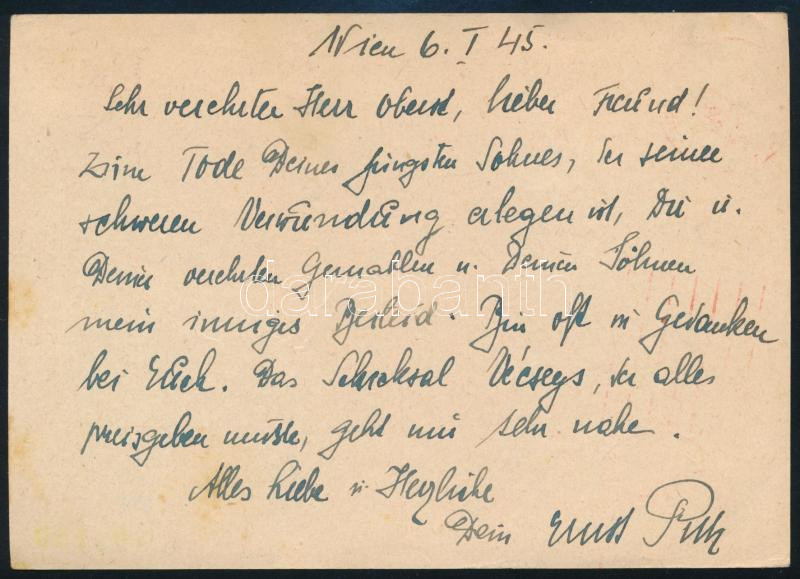 Wien 6. I 45.
Sehr verehrter Herr Oberst, lieber Freund!
Zum Tode Deines jüngsten Sohnes, der seiner
schweren Verwundung erlegen ist, Dir u.
Deiner verehrten Gemahlin u. Deinen Söhnen
mein inniges Beileid. Bin oft in Gedanken
bei Euch. Das Schicksal Vécseys, der alles
preisgeben musste, geht mir sehr nahe.
Alles Liebe u Herzliche
Dein Ernst
darabanth